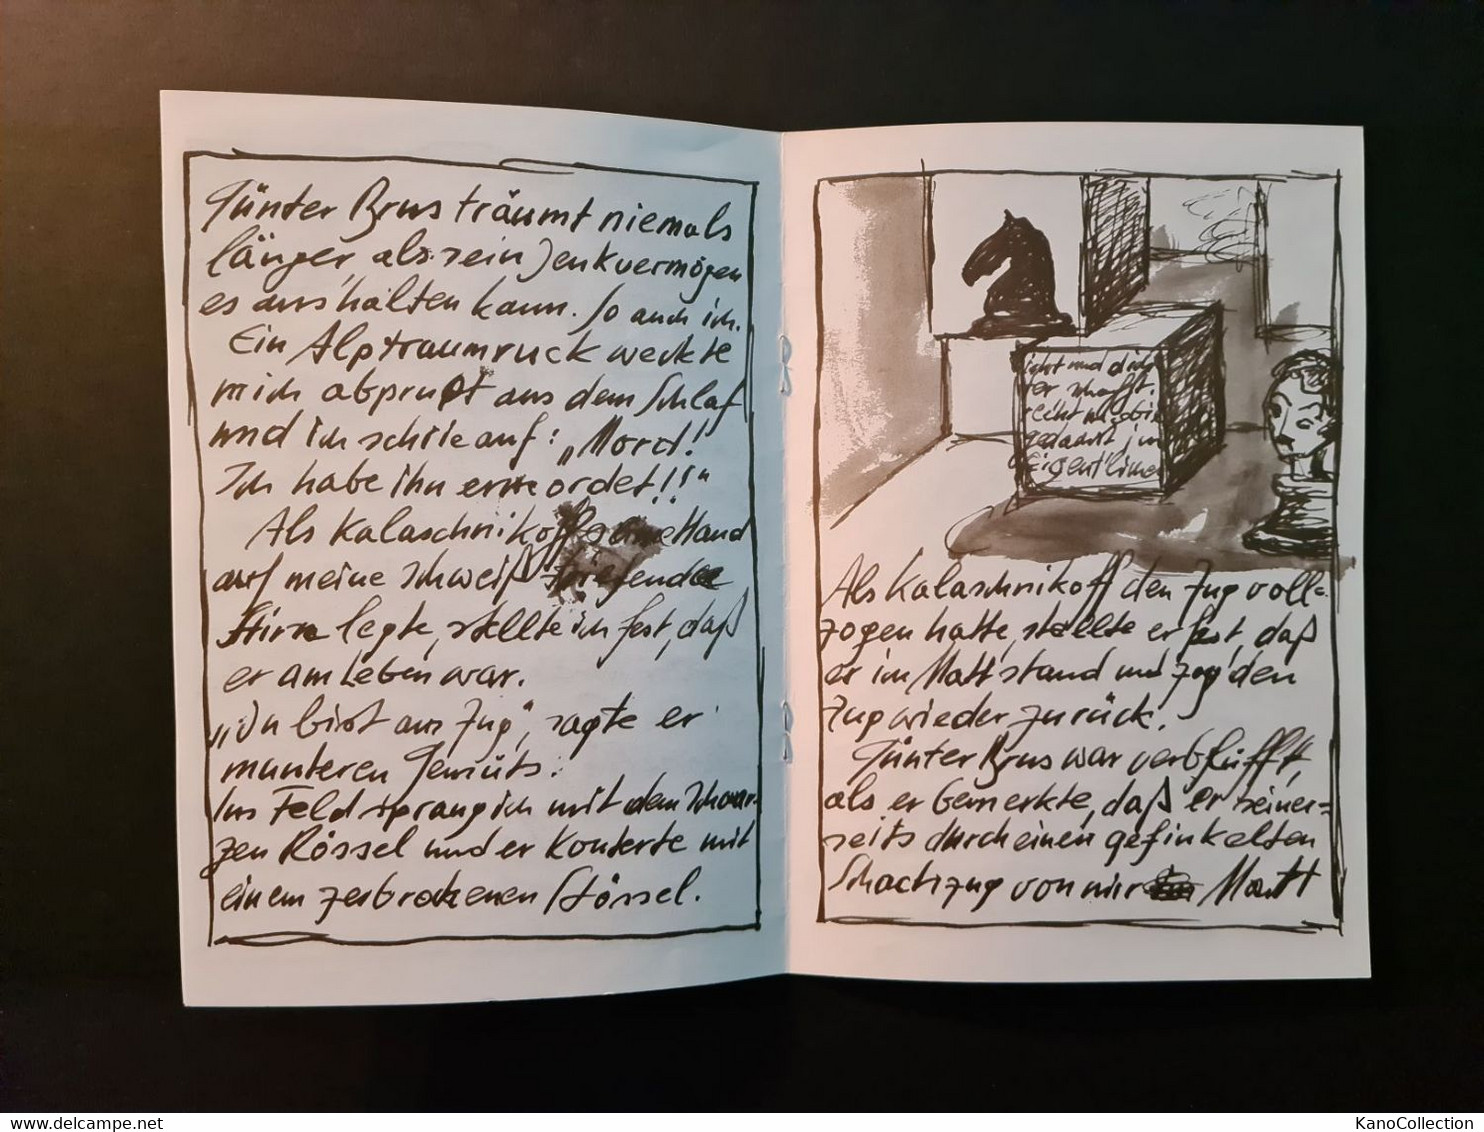 Günter Brus träumt niemals
länger, als sein Denkvermögen
es aushalten kann. So auch ich.
Ein Alptraumruck weckte
mich abprupt aus dem Schlaf
und ich schrie auf: „Mord!
Ich habe ihn ermordet!!"
Als Kalaschnikoff seine Hand
auf meine schweißtriefende
Stirne legte, stellte ich fest, daß
er am Leben war.
„Du bist am Zug", sagte er
munteren Gemüts.
Ins Feld sprang ich mit dem schwar-
zen Rössel und er konterte mit
einem zerbrochenen Stössel.
icht und dich
ter schafft
recht
gedacht im
Eigentlime
Als Kalaschnikoff den Zug voll-
zogen hatte, stellte er fest, daß
er im Matt stand und zog den
Zug wieder zurück.
Günter Brus war verblüfft,
als er bemerkte, daß er seiner-
seits durch einen gefinkelten
Schachzug von mir Matt
delcampe.net
KanoCollection